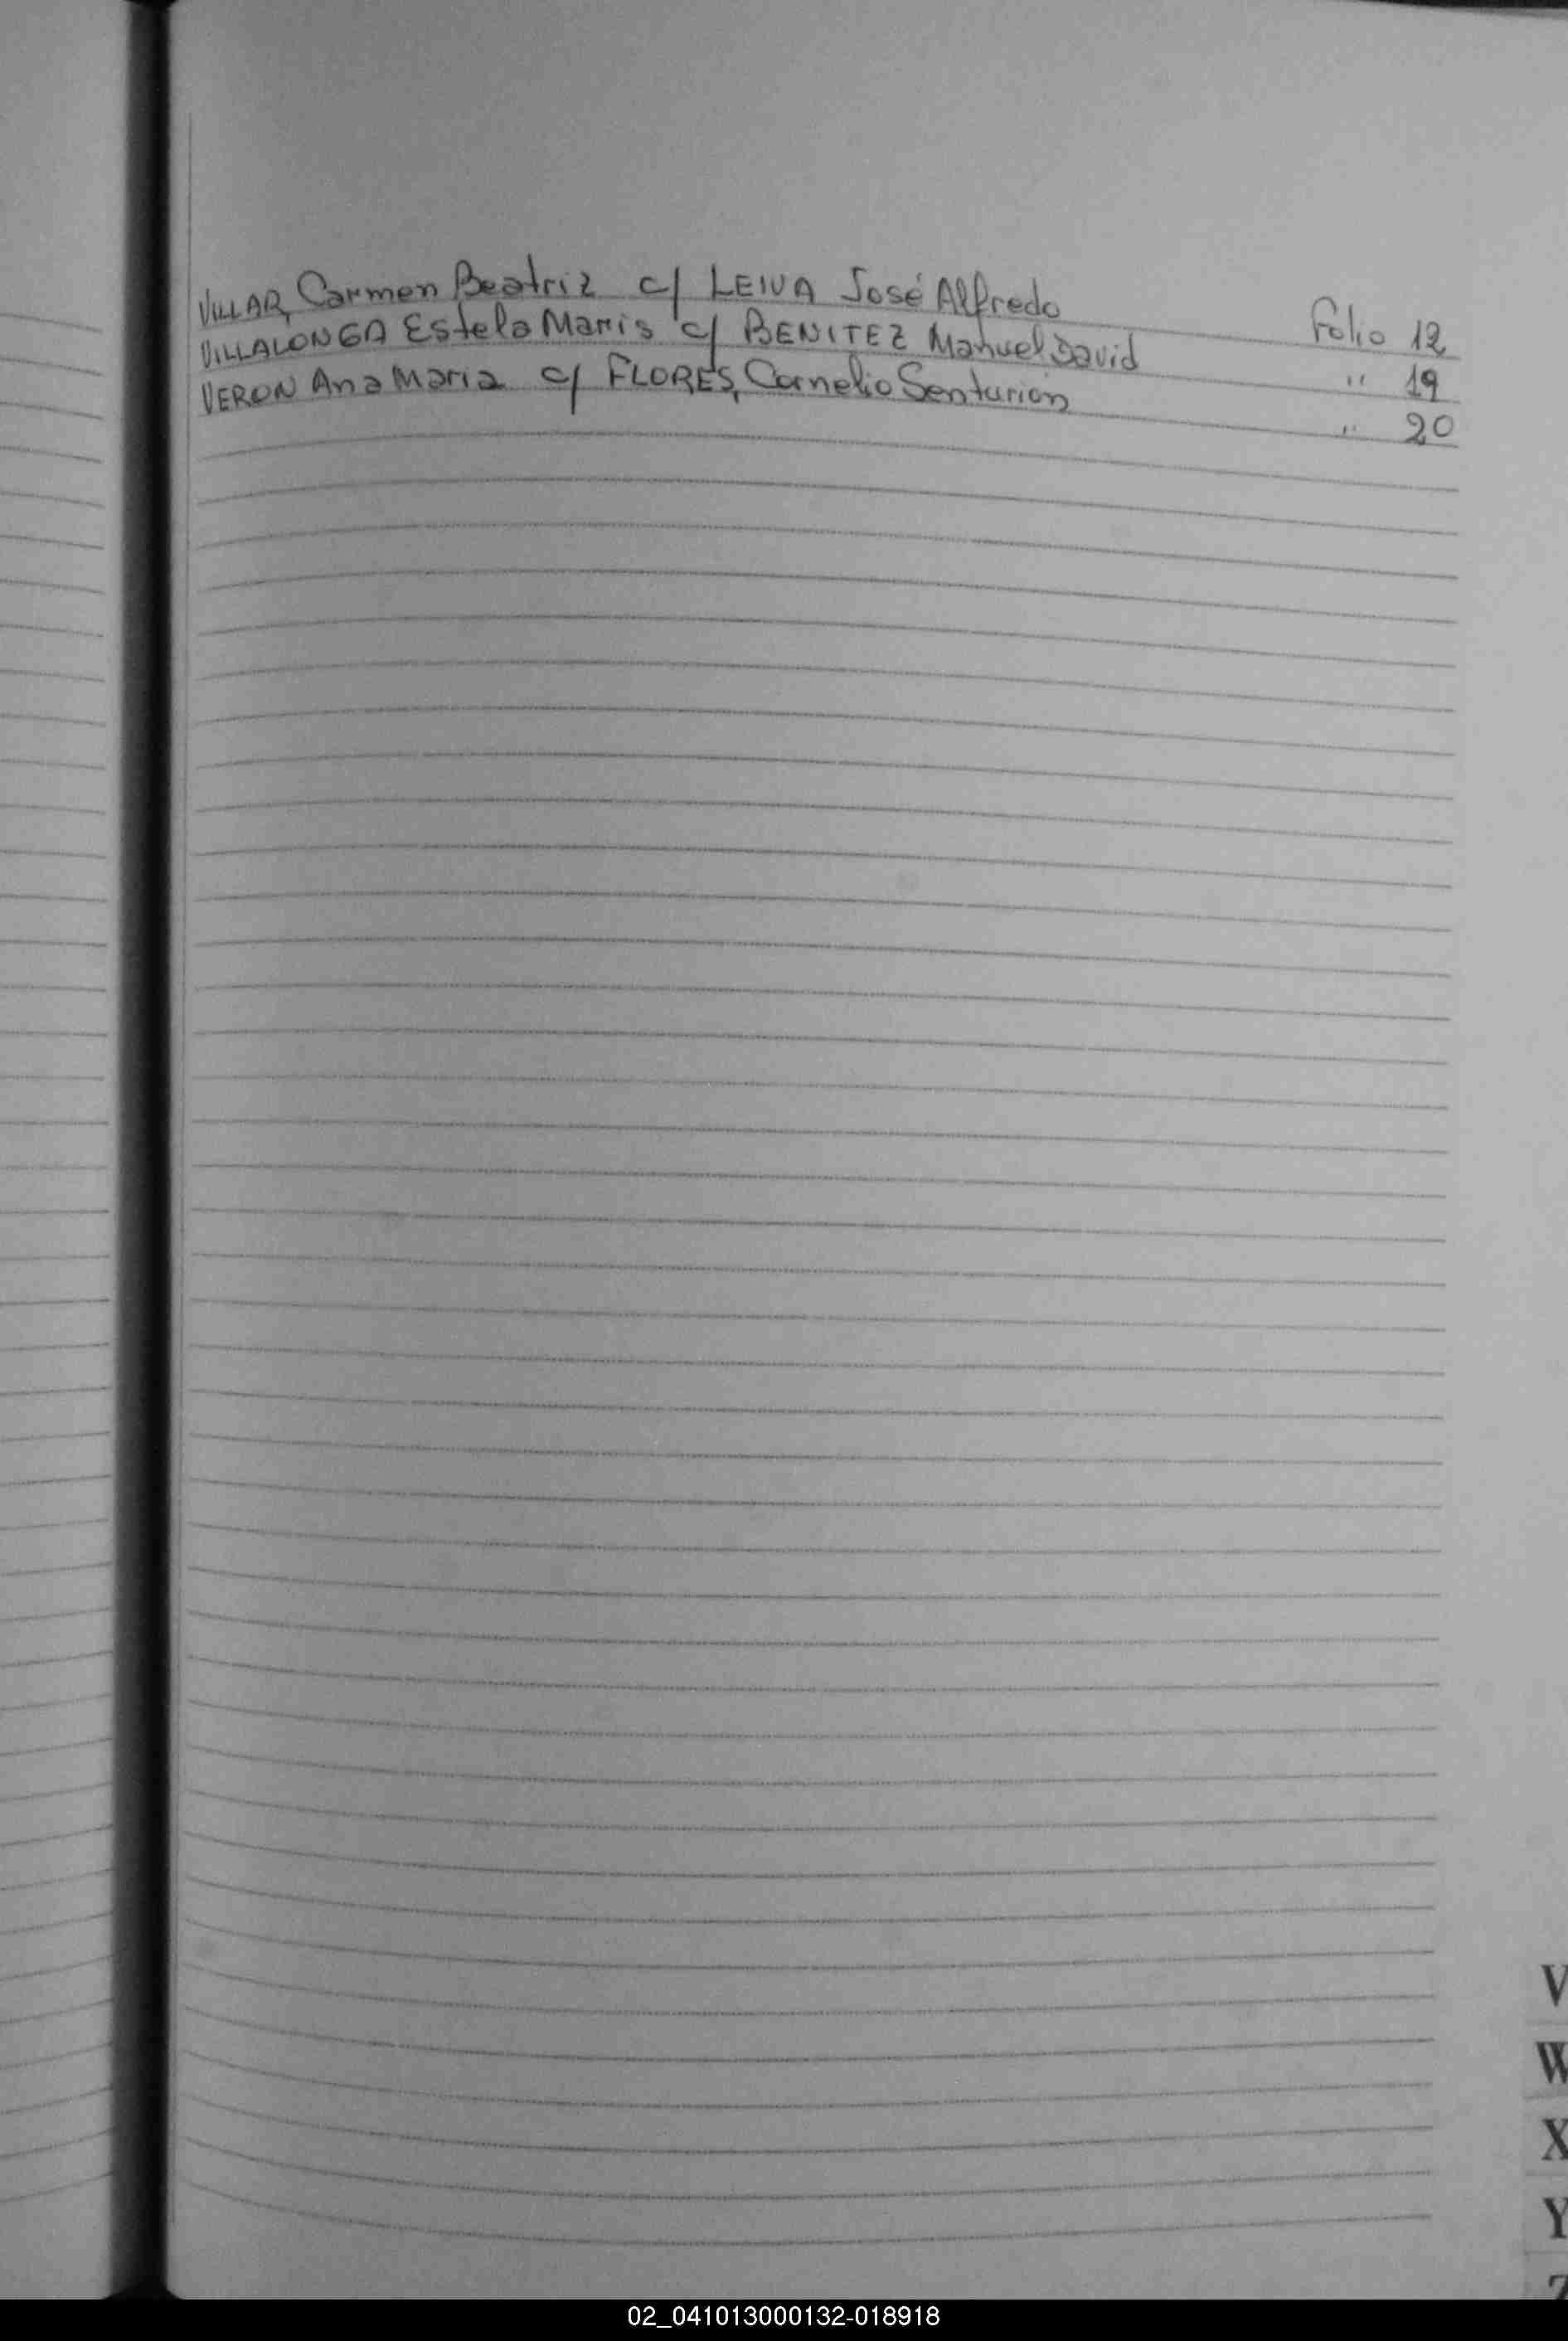 VILLAR, Carmen Beatriz c/ LEIVA José Alfredo Folio 12
VILLALONGA Estela Maris c/ BENITEZ Manuel David " 19
VERON Ana Maria c/ FLORES, Cornelio Senturión " 20
V
W
X
Y
Z
02_041013000132-018918